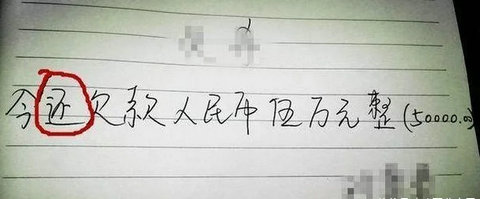 今还欠款人民币伍万元整(50000.00